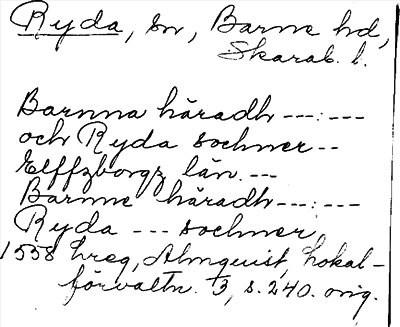 Ryda, sn, Barne hd,
Skarab. l.
Barnna häradh ---:---
och Ryda sochner --
Elffzborgz län. ---
Barnne häradh ---:---
Ryda --- sochner
1558 hreg, Almquist, Lokal-
förvaltn. 3, s. 240. orig.